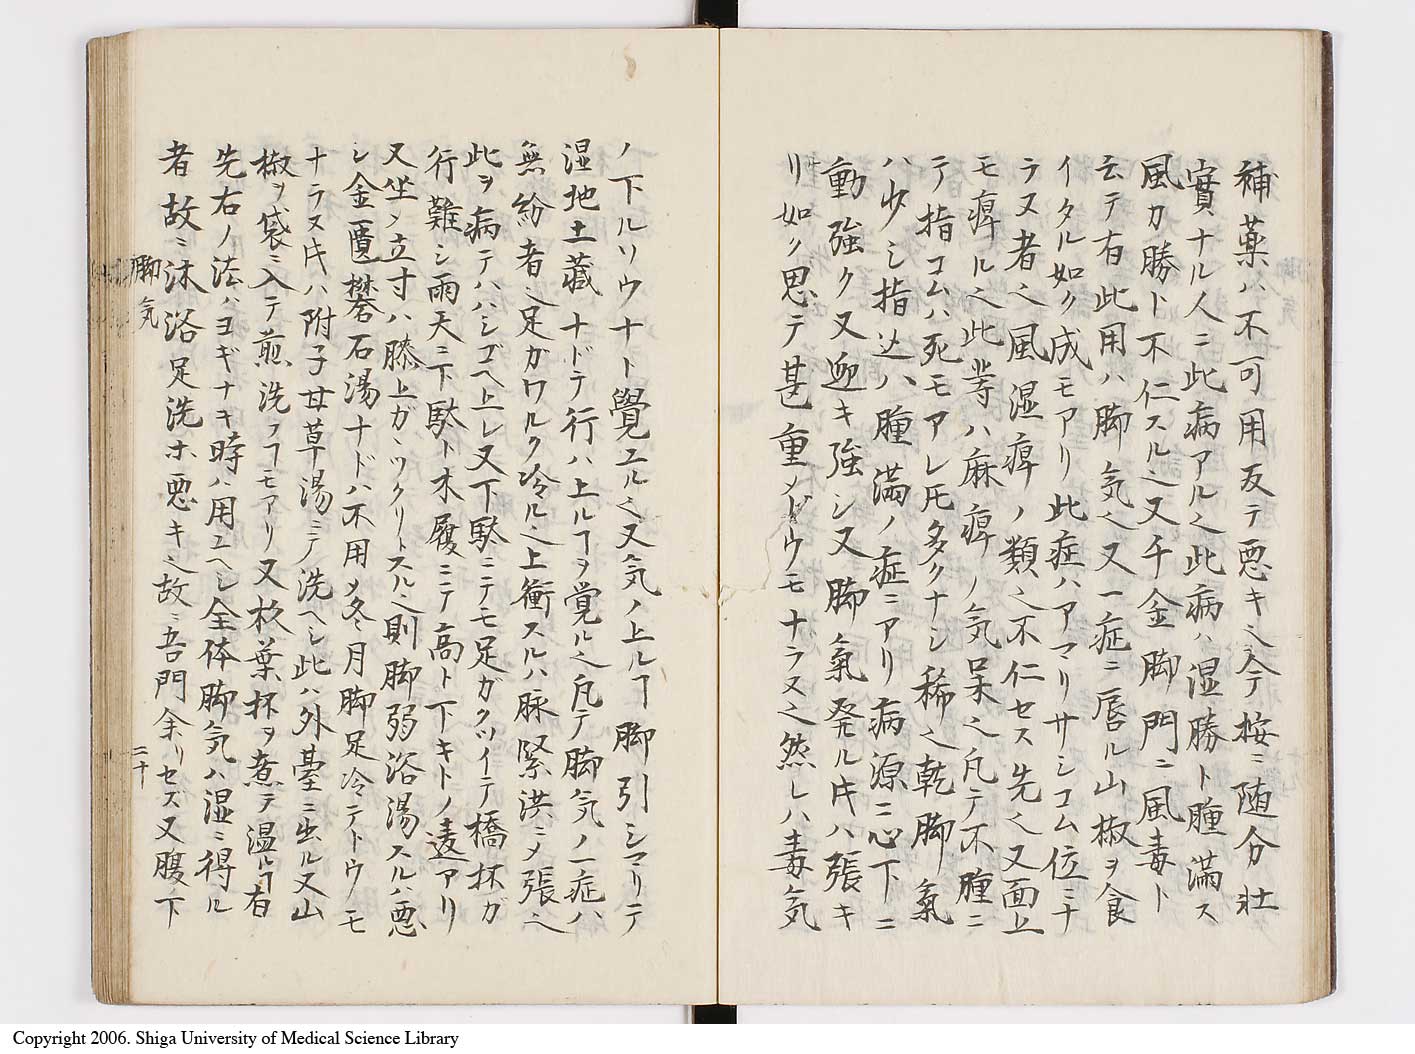 補薬ハ不可用反テ悪キ也今テ按ニ随分壮
實ナル人ニ此病アル也此病ハ湿勝ト腫満ス
風カ勝ト不仁スル也又千金脚門ニ風毒ト
云テ有此用ハ脚気也又一症ニ唇ル山椒ヲ食
イタル如ク成モアリ此症ハアマリサシコム位ミナ
ラヌ者也風湿痺ノ類也不仁セス先也又面上
モ痺ル也此等ハ麻痺ノ気呆也凡テ不腫ニ
テ指コムハ死モアレ𪜈多クナシ稀也乾脚氣
ハ少シ指込ハ腫満ノ症ニアリ病源ニ心下ニ
動強ク又迎キ強シ又脚氣発ル𪜈ハ張キ
リ如ク思テ甚重メドウモナラヌ也然レハ毒気
ノ下ルソウナト覺エル也又気ノ上ルヿ脚引シマリテ
湿地土藏ナドテ行ハ上ルヿヲ覚ル也凡テ脚気ノ一症ハ
無紛者也足ガワルク冷ル也上衝スルハ脉緊洪ニメ張也
此ヲ病テハハシゴヘ上レ又下駄ニテモ足ガクツイテ橋杯ガ
行難シ雨天ニ下駄ト木履ニテ高ト下キトノ違アリ
又坐ノ立寸ハ膝上ガヾツクリトスル也則脚弱浴湯スルハ悪
シ金匱礬石湯ナドハ不用メ冬月脚足冷テトウモ
ナラヌ𪜈ハ附子甘草湯ニテ洗ヘシ此ハ外臺ニ出ル又山
椒ヲ袋ニ入テ煎洗フヿモアリ又杦葉杯ヲ煮テ温ルヿ有
先右ノ法ハヨギナキ時ハ用ユヘシ全体脚気ハ湿ニ得ル
者故ニ沐浴足洗ホ悪キ也故ニ吾門余リセズ又腹下
脚気
二十
Copyright 2006. Shiga University of Medical Science Library